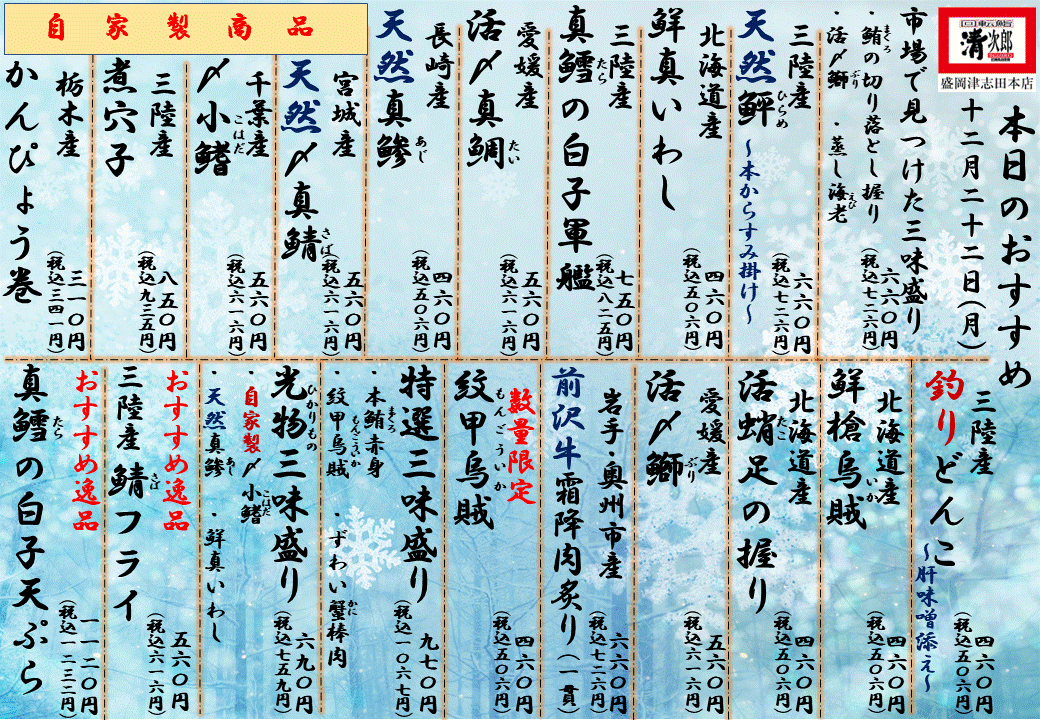 回転鮨
清次郎
盛岡津志田本店
本日のおすすめ
十二月二十二日(月)
市場で見つけた三味盛り
・鮪の切り落とし握り
まぐろ
・活〆鰤 ・蒸し海老
ぶり
えび
六六〇円
(税込七二六円)
三陸産
天然鮃
ひらめ
～本からすみ掛け～
六六〇円
(税込七二六円)
北海道産
鮮真いわし
四六〇円
(税込五〇六円)
三陸産
真鱈の白子軍艦
たら
七五〇円
(税込八二五円)
愛媛産
活〆真鯛
たい
五六〇円
(税込六一六円)
長崎産
天然真鯵
あじ
四六〇円
(税込五〇六円)
自家製商品
宮城産
天然〆真鯖
さば
五六〇円
(税込六一六円)
千葉産
〆小鰭
こはだ
五六〇円
(税込六一六円)
三陸産
煮穴子
八五〇円
(税込九三五円)
栃木産
かんぴょう巻
三一〇円
(税込三四一円)
三陸産
釣りどんこ
～肝味噌添え～
四六〇円
(税込五〇六円)
北海道産
鮮槍烏賊
いか
四六〇円
(税込五〇六円)
北海道産
活蛸足の握り
たこ
四六〇円
(税込五〇六円)
愛媛産
活〆鰤
ぶり
五六〇円
(税込六一六円)
岩手・奥州市産
前沢牛霜降肉炙り(一貫)
六六〇円
(税込七二六円)
数量限定
紋甲烏賊
もんごういか
四六〇円
(税込五〇六円)
特選三味盛り
・本鮪赤身
まぐろ
・紋甲烏賊 ・ずわい蟹棒肉
もんごういか
かに
九七〇円
(税込一〇六七円)
光物三味盛り
ひかりもの
・自家製〆小鰭
こはだ
・天然真鯵 ・鮮真いわし
あじ
六九〇円
(税込七五九円)
おすすめ逸品
三陸産 鯖フライ
さば
五六〇円
(税込六一六円)
おすすめ逸品
真鱈の白子天ぷら
たら
一一二〇円
(税込一二三二円)